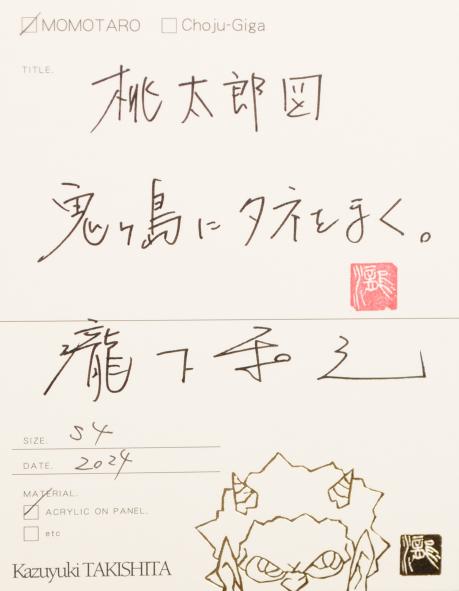 MOMOTARO Choju-Giga
TITLE.
桃太郎図
鬼ヶ島にタネをまく。
瀧下和之
SIZE. S4
DATE. 2024
MATERIAL.
ACRYLIC ON PANEL.
etc
Kazuyuki TAKISHITA